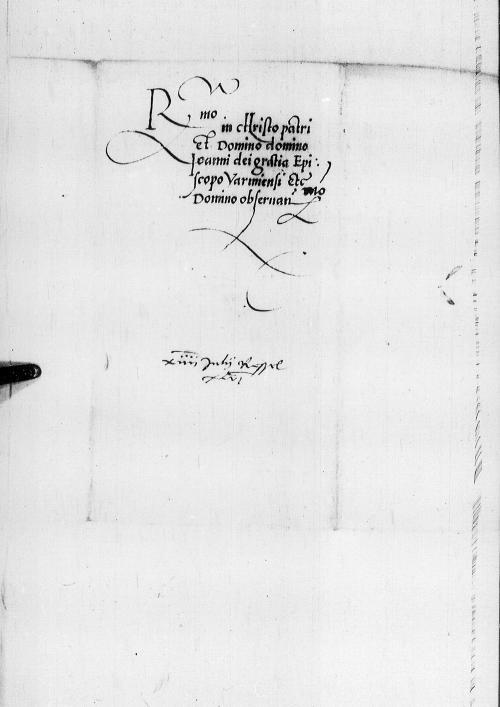 Rmo
in christo patri
Et Domino domino
Joanni dei gratia Epi:
scopo Varmiensi Etc
Domino obseruanmo
xiiii Julij Ressel
xlvi